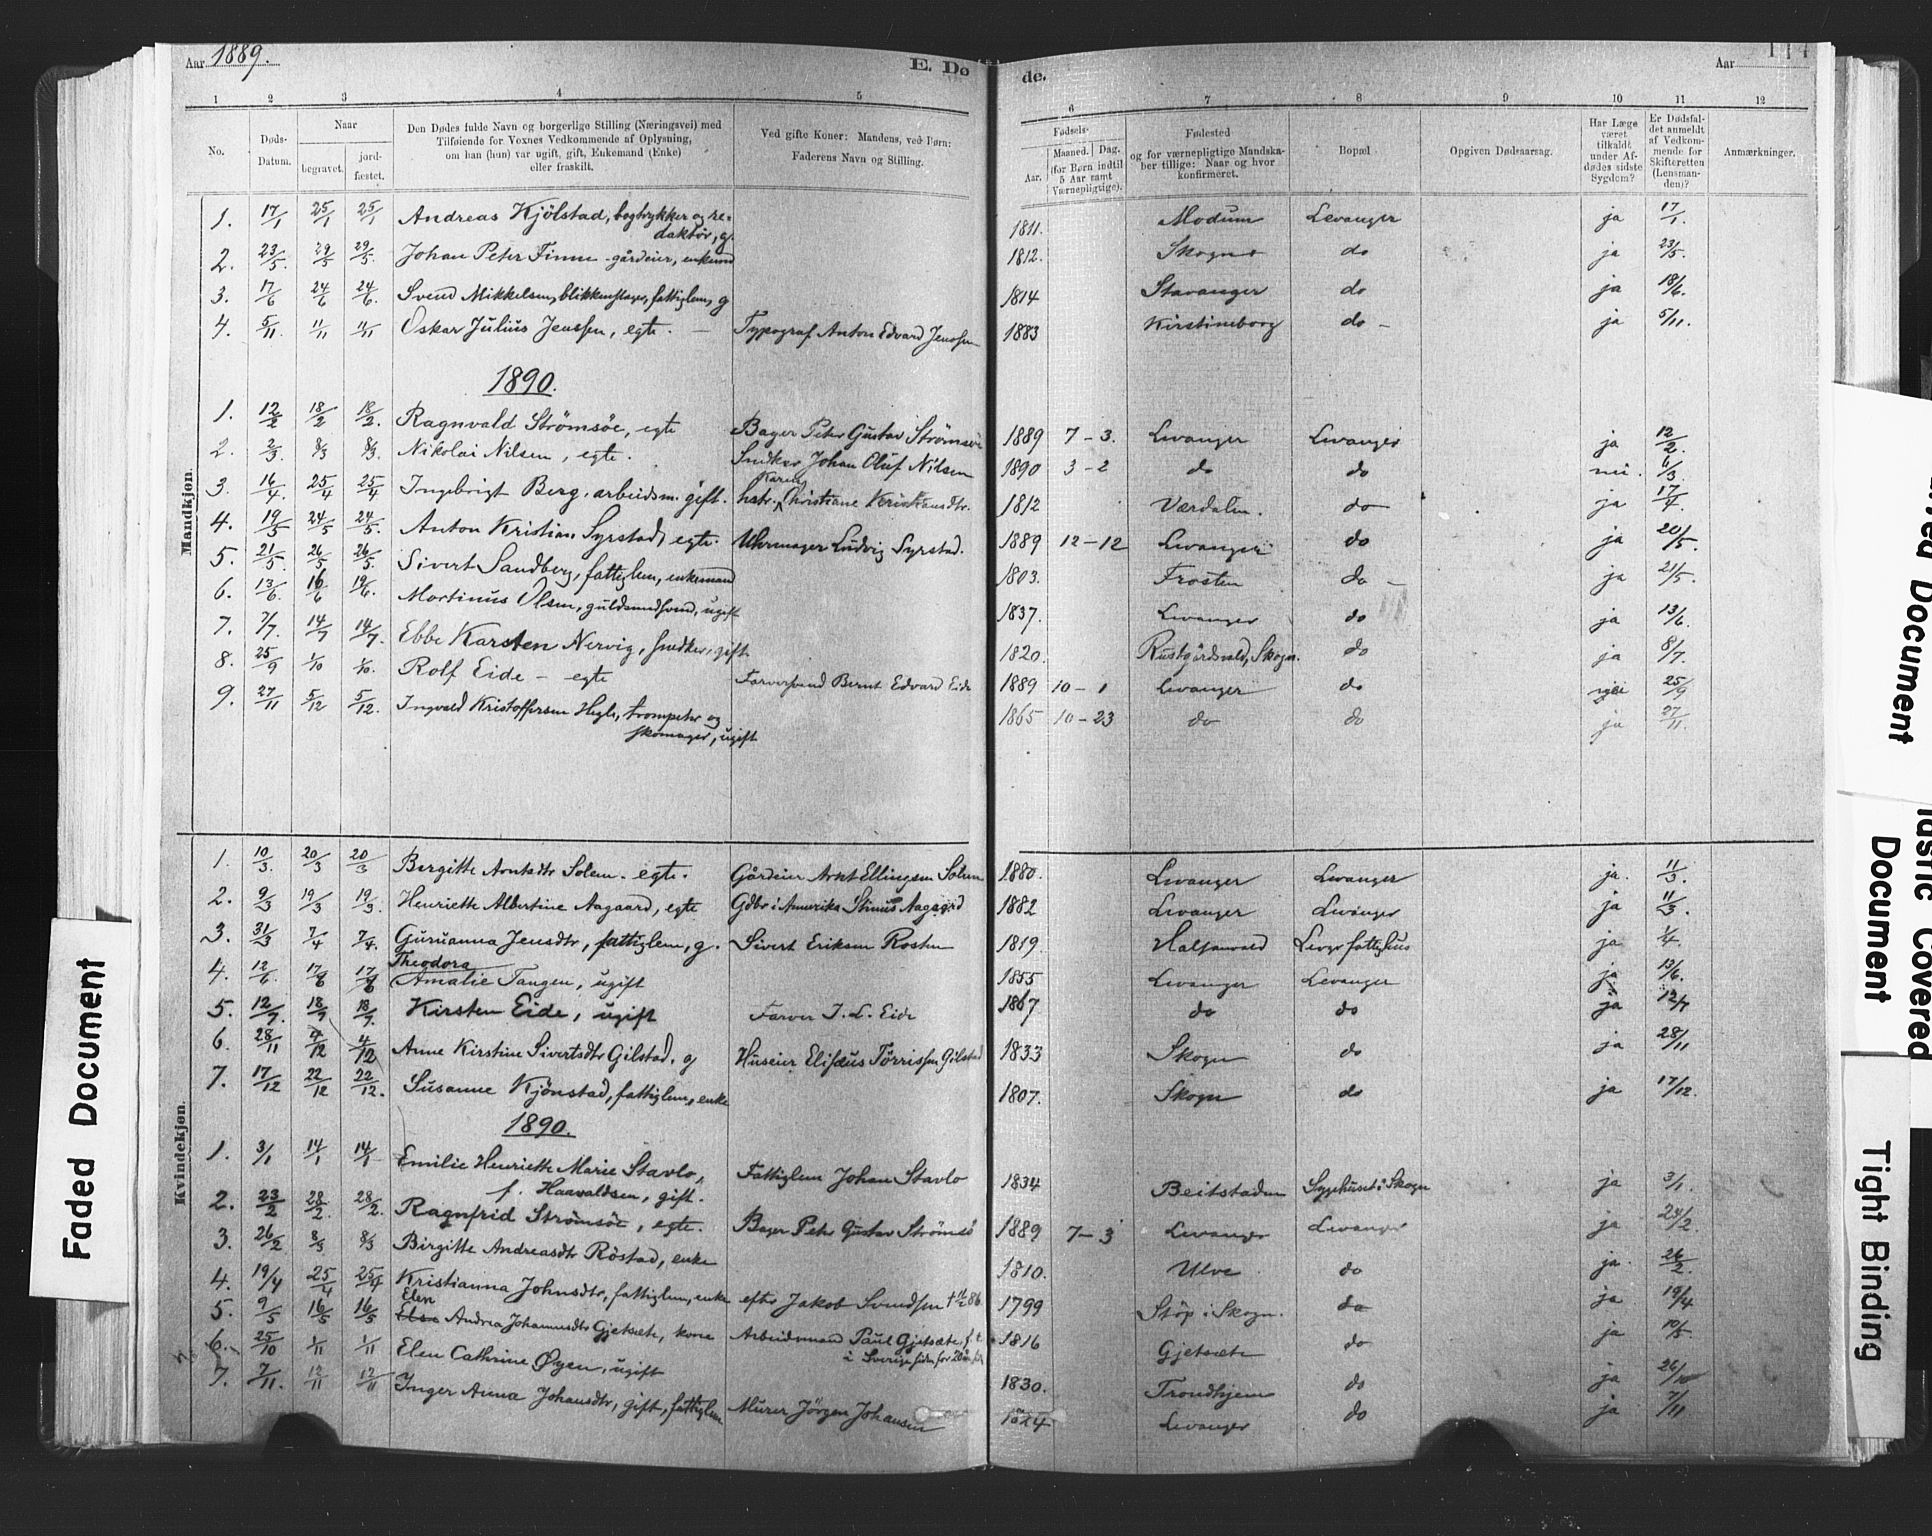 Aar 1889.
E. Do
de.
Aar
1 2 3 4 5 6 7 8 9 10 11 12
No.
Døds-Datum.
Naar
begravet. jord-fæstet.
Den Dødes fulde Navn og borgerlige Stilling (Næringsvei) med
Tilføiende for Voxnes Vedkommende af Oplysning,
om han (hun) var ugift, gift, Enkemand (Enke)
eller fraskilt.
Ved gifte Koner: Mandens, ved Børn:
Faderens Navn og Stilling.
Fødsels-
Aar. Maaned. Dag.
(for Børn indtil
5 Aar samt
Værnepligtige).
Fødested
og for værnepligtige Mandska-
ber tillige: Naar og hvor
konfirmeret.
Bopæl
Opgiven Dødsaarsag.
Har Læge
været
tilkaldt
under Af-
dødes sidste
Sygdom?
Er Dødsfal-
det anmeldt
af Vedkom-
mende for
Skifteretten
(Lensman-
den)?
Anmærkninger.
Mandkjøn
1. 17/1 25/1 25/1 Andreas Kjölstad, bogtrykker og re- 1811. Modum Levanger ja 17/1.
daktör, g.
2. 23/5. 29/5 29/5. Johan Peter Finne - gårdeier, enkemd 1812. Skogn do ja 23/5.
3. 17/6 24/6 24/6. Svend Mikkelsen, blikkenslager, fattiglem, g 1814 Stavanger do ja 18/6.
4. 5/11. 11/11 11/11 Oskar Julius Jenssen, egte. — Typograf Anton Edvard Jenssen 1883 Kirstineborg do - ja 5/11.
1890.
1. 12/2 18/2 18/2. Ragnvald Strömsöe, egte Bager Peter Gustav Strömsöe 1889 7 - 3. Levanger Levanger ja 12/2.
2. 2/3. 8/3 8/3. Nikolai Nilsen, egte. Snedker Johan Oluf Nilsen 1890 3 - 2 do do nei. 6/3
Karen
3. 16/4. 25/4 25/4 Ingebrigt Berg, arbeidsm. gift. hstr. Christiane Kristiansdtr. 1812 Værdalen. do ja 17/4.
4. 19/5 24/5 24/5. Anton Kristian Syrstad, egte. Uhrmager Ludvig Syrstad. 1889 12 - 12 Levanger do ja 20/5.
5. 21/5. 26/5 26/5. Sivert Sandberg, fattiglem, enkemand 1803. Frosten do - ja 21/5.
6. 13/6. 16/6 19/6. Martinus Olsen, guldsmedsvend, ugift 1837. Levanger do ja 13/6.
7. 7/7. 14/7 14/7. Ebbe Karsten Nervig, snedker, gift 1820. Rustgårdsvald, Skogn. do ja 8/7.
8. 25/9 1/10 1/10. Rolf Eide - egte Farversvend Bernt Edvard Eide 1889 10 - 1 Levanger do nei 25/9
9. 27/11 5/12 5/12. Ingvald Kristoffersen Hegle, trompeter og 1865 10 - 23 do do ja 27/11.
skomager, ugift
Kvindekjøn.
1. 10/3. 20/3 20/3 Bergitte Arntsdtr Solem. egte. Gårdeier Arnt Ellingsen Solem 1880. Levanger Levanger ja. 11/3.
2. 9/3 19/3 19/3. Henriette Albertine Aagaard, egte Gdbr i Amerika Stinus Aagaard 1882 Levanger Levanger ja 11/3.
3. 31/3 7/4 7/4. Guruanna Jensdtr, fattiglem, g. Sivert Eriksen Rosten 1819. Halsanvald Levgr fattighus ja 1/4
Theodora
4. 12/6. 17/6 17/6 Amalie Tangen, ugift 1855 Levanger Levanger ja 13/6.
5. 12/7. 18/7 18/7. Kirsten Eide, ugift Farver J. L. Eide 1867 do do ja 12/7
6. 28/11 4/12 4/12 Anne Kirstine Sivertsdtr Gilstad. g Huseier Elisæus Törrissen Gilstad 1833 Skogn do ja 28/11
7. 17/12 22/12 22/12. Susanne Kjönstad, fattiglem, enke 1807. Skogn do ja 17/12.
1890.
1. 3/1 14/1 14/1 Emilie Henriette Marie Stavlo, Fattiglem Johan Stavlo 1834 Beitstaden Sygehuset i Skogn ja 3/1.
f. Haavaldsen, gift.
2. 23/2 28/2. 28/2. Ragnfrid Strömsöe, egte. Bager Peter Gustav Strömsö 1889 7 - 3 Levanger Levanger ja 24/2.
3. 26/2 8/3 8/3 Birgitte Andreasdtr Röstad, enke 1810. Ulve do ja. 26/2.
4. 19/4 25/4 25/4 Kristianna Johnsdtr, fattiglem, enke efter Jakob Svendsen † 11/2 86 1799 Stöp i Skogn. do ja 19/4
Elen
5. 9/5 16/5 16/5 Andrea Johannesdtr Gjetsæte, kone Arbeidsmand Paul Gjetsæte, f. t. 1816 Gjetsæte do ja 10/5
i Sverige siden for 20 år siden
6. 25/10 1/11 1/11 Elen Cathrine Øyen, ugift 1830. Trondhjem do ja 26/10
7. 7/11. 12/11 12/11 Inger Anna Johansdtr, gift, fattiglem Murer Jörgen Johansen 1824 Levanger do ja 7/11
Faded Document
Document
Document
Covered
Tight Binding